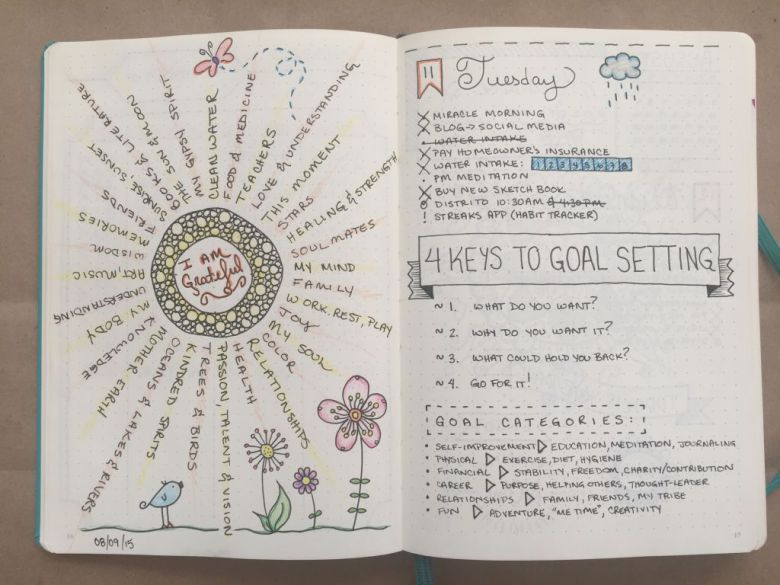 I AM
Grateful
CLEAN WATER
FOOD & MEDICINE
TEACHERS
LOVE & UNDERSTANDING
THIS MOMENT
STARS
HEALING & STRENGTH
SOUL MATES
MY MIND
FAMILY
WORK, REST, PLAY
JOY
MY SOUL
COLOR
RELATIONSHIPS
HEALTH
PASSION, TALENT & VISION
TREES & BIRDS
KINDRED SPIRITS
OCEANS & LAKES & RIVERS
MOTHER EARTH
KNOWLEDGE
MY BODY
UNDERSTANDING
ART, MUSIC
WISDOM
MEMORIES
FRIENDS
SUNRISE, SUNSET
BOOKS & LITERATURE
THE SUN & MOON
MY GYPSY SPIRIT
08/09/15
11 Tuesday
X MIRACLE MORNING
X BLOG → SOCIAL MEDIA
• WATER INTAKE
X PAY HOMEOWNER'S INSURANCE
X WATER INTAKE: 1 2 3 4 5 6 7 8
• PM MEDITATION
X BUY NEW SKETCH BOOK
DISTRITO 10:30AM & 4:30PM
! STREAKS APP (HABIT TRACKER)
4 KEYS TO GOAL SETTING
~ 1. WHAT DO YOU WANT?
~ 2. WHY DO YOU WANT IT?
~ 3. WHAT COULD HOLD YOU BACK?
~ 4. GO FOR IT!
GOAL CATEGORIES:
• SELF-IMPROVEMENT ▷ EDUCATION, MEDITATION, JOURNALING
• PHYSICAL ▷ EXERCISE, DIET, HYGIENE
• FINANCIAL ▷ STABILITY, FREEDOM, CHARITY/CONTRIBUTION
• CAREER ▷ PURPOSE, HELPING OTHERS, THOUGHT-LEADER
• RELATIONSHIPS ▷ FAMILY, FRIENDS, MY TRIBE
• FUN ▷ ADVENTURE, "ME TIME", CREATIVITY